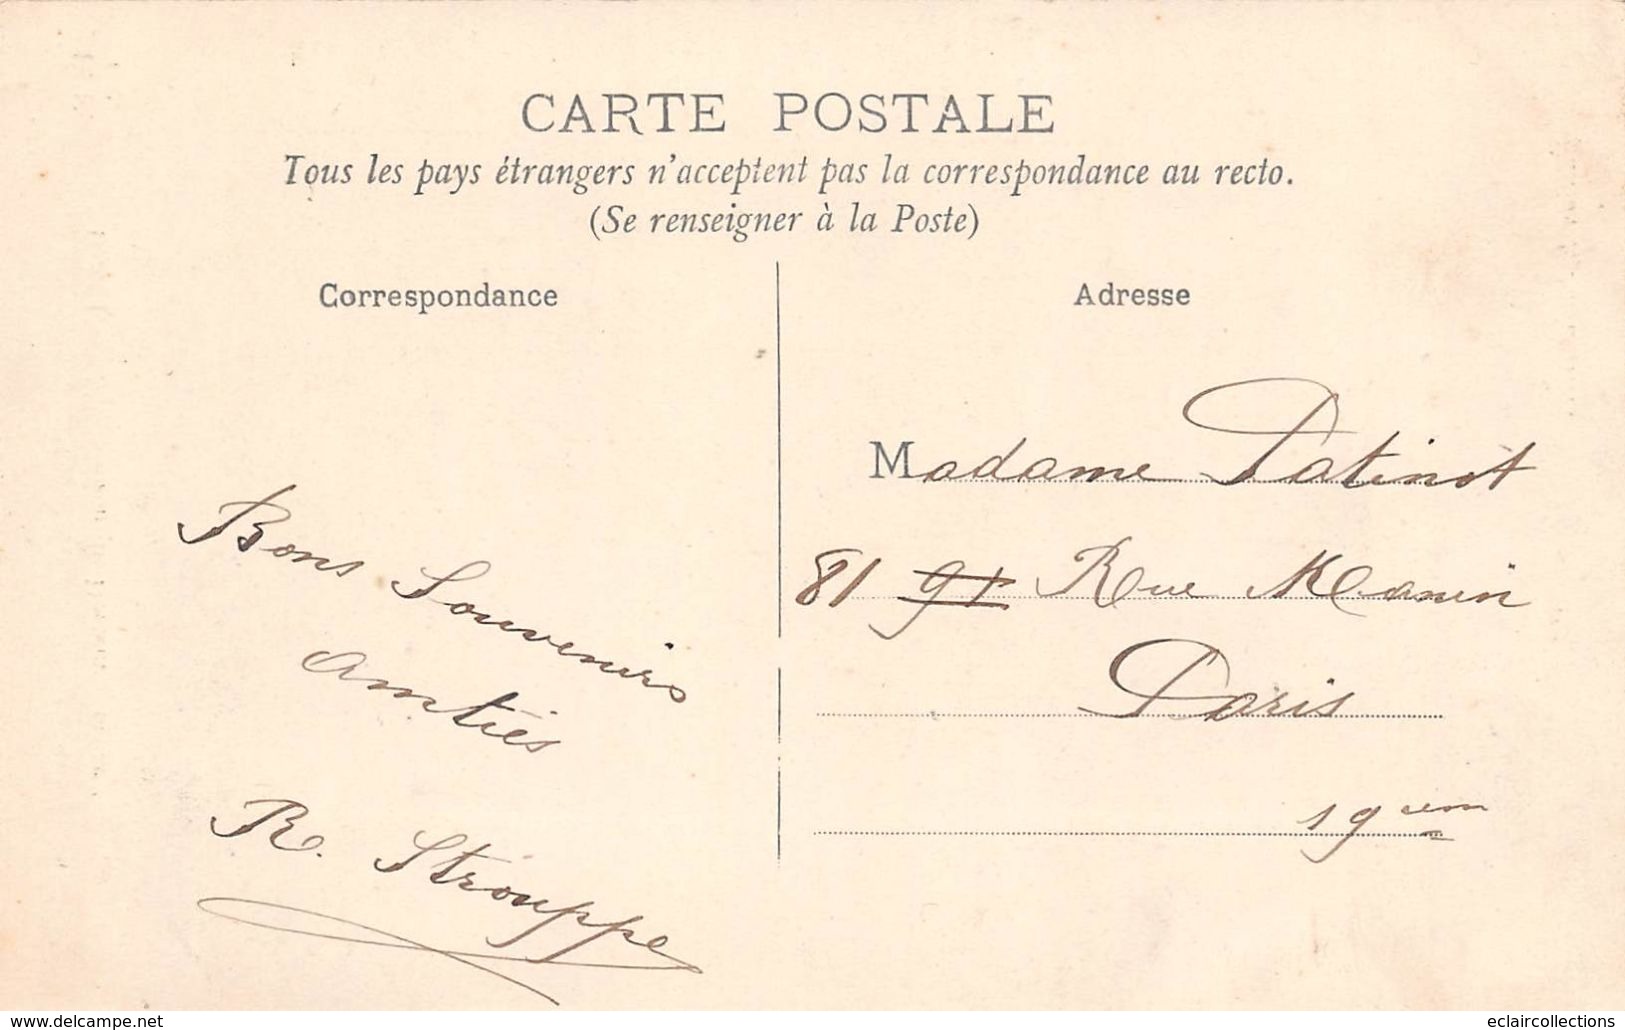 CARTE POSTALE
Tous les pays étrangers n'acceptent pas la correspondance au recto.
(Se renseigner à la Poste)
Correspondance
Adresse
Bons Souvenirs
Amitiés
R. Strouppe
Madame Patinot
81 91 Rue Manin
Paris
19em
www.delcampe.net
eclaircollections